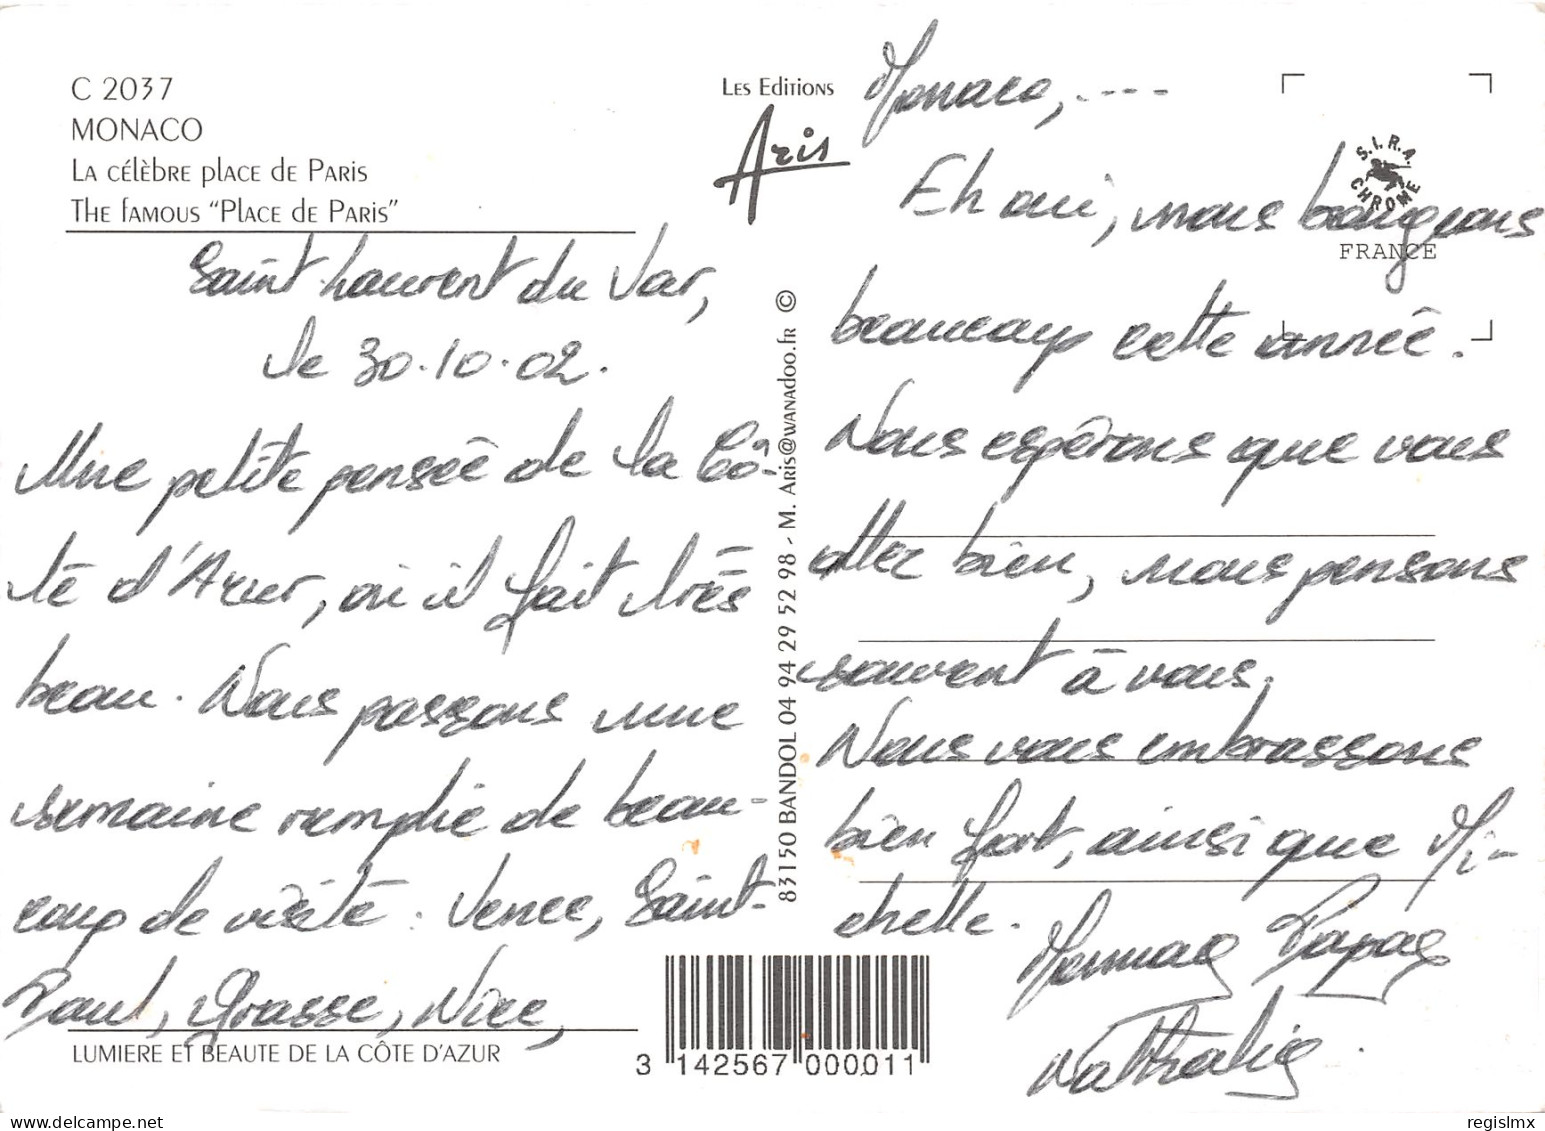 C 2037
MONACO
La célèbre place de Paris
The famous "Place de Paris"
Saint Laurent du Var,
le 30.10.02.
Une petite pensée de la Cô-
te d'Azur, où il fait très
beau. Nous passons une
semaine remplie de beau-
coup de visite : Vence, Saint-
Paul, Grasse, Nice,
LUMIERE ET BEAUTE DE LA CÔTE D'AZUR
3 142567 000011
83150 BANDOL 04 94 29 52 98 - M. Aris@wanadoo.fr ©
Les Editions
Aris
S.I.R.A.
CHROME
FRANCE
Monaco, ....
Eh oui, nous bougeons
beaucoup cette année.
Nous espérons que vous
allez bien, nous pensons
souvent à vous.
Nous vous embrassons
bien fort, ainsi que Mi-
chelle.
Nathalie
regislmx